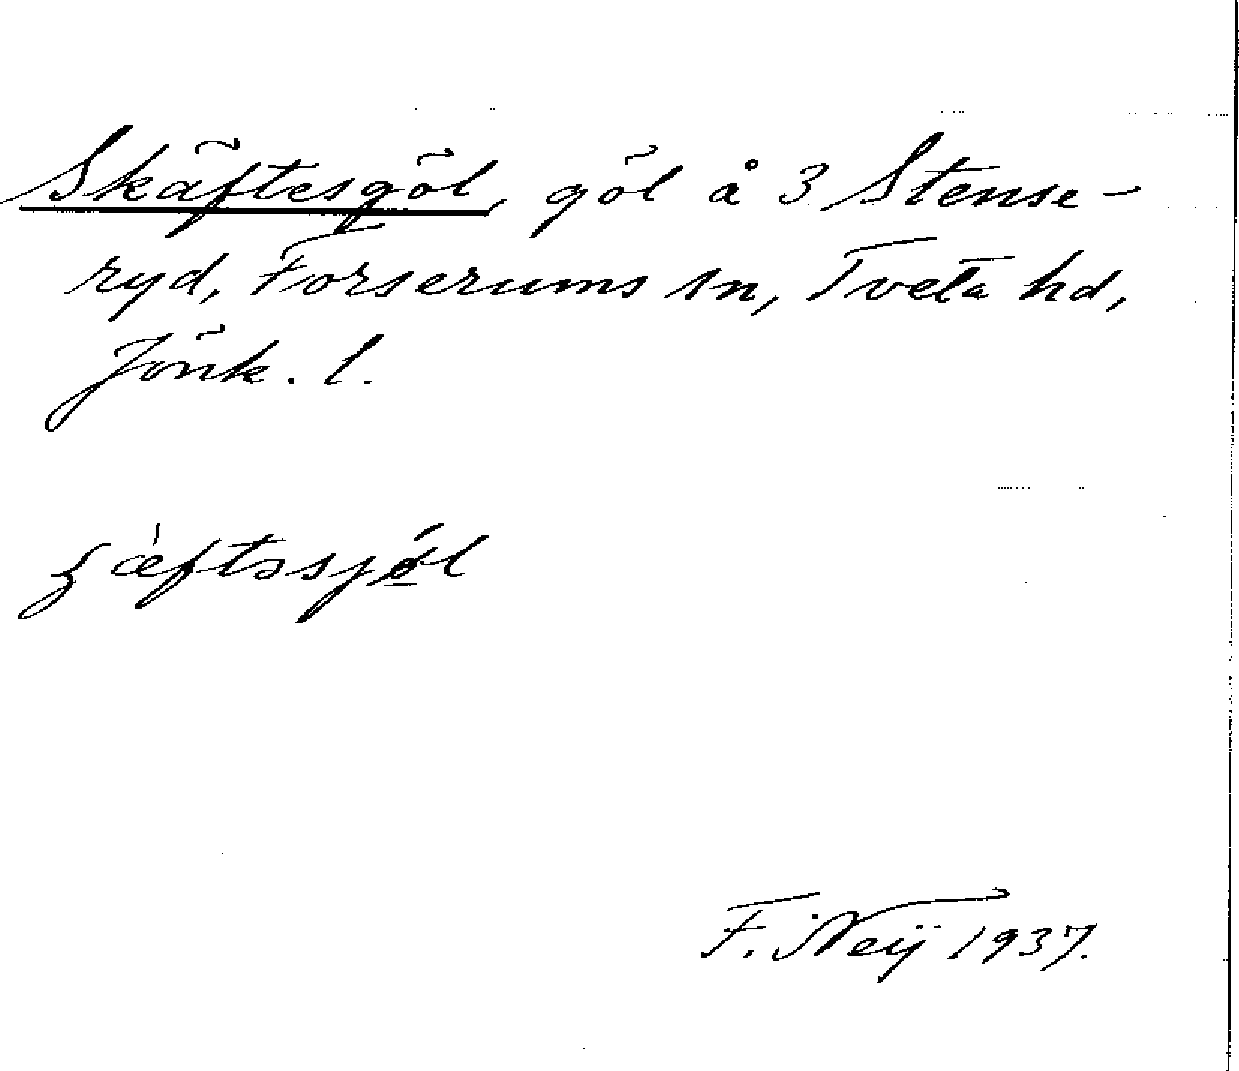 Skäftesgöl, göl å 3 Stense-
ryd, Forserums sn, Tveta hd,
Jönk. l.
F. Neij 1937.